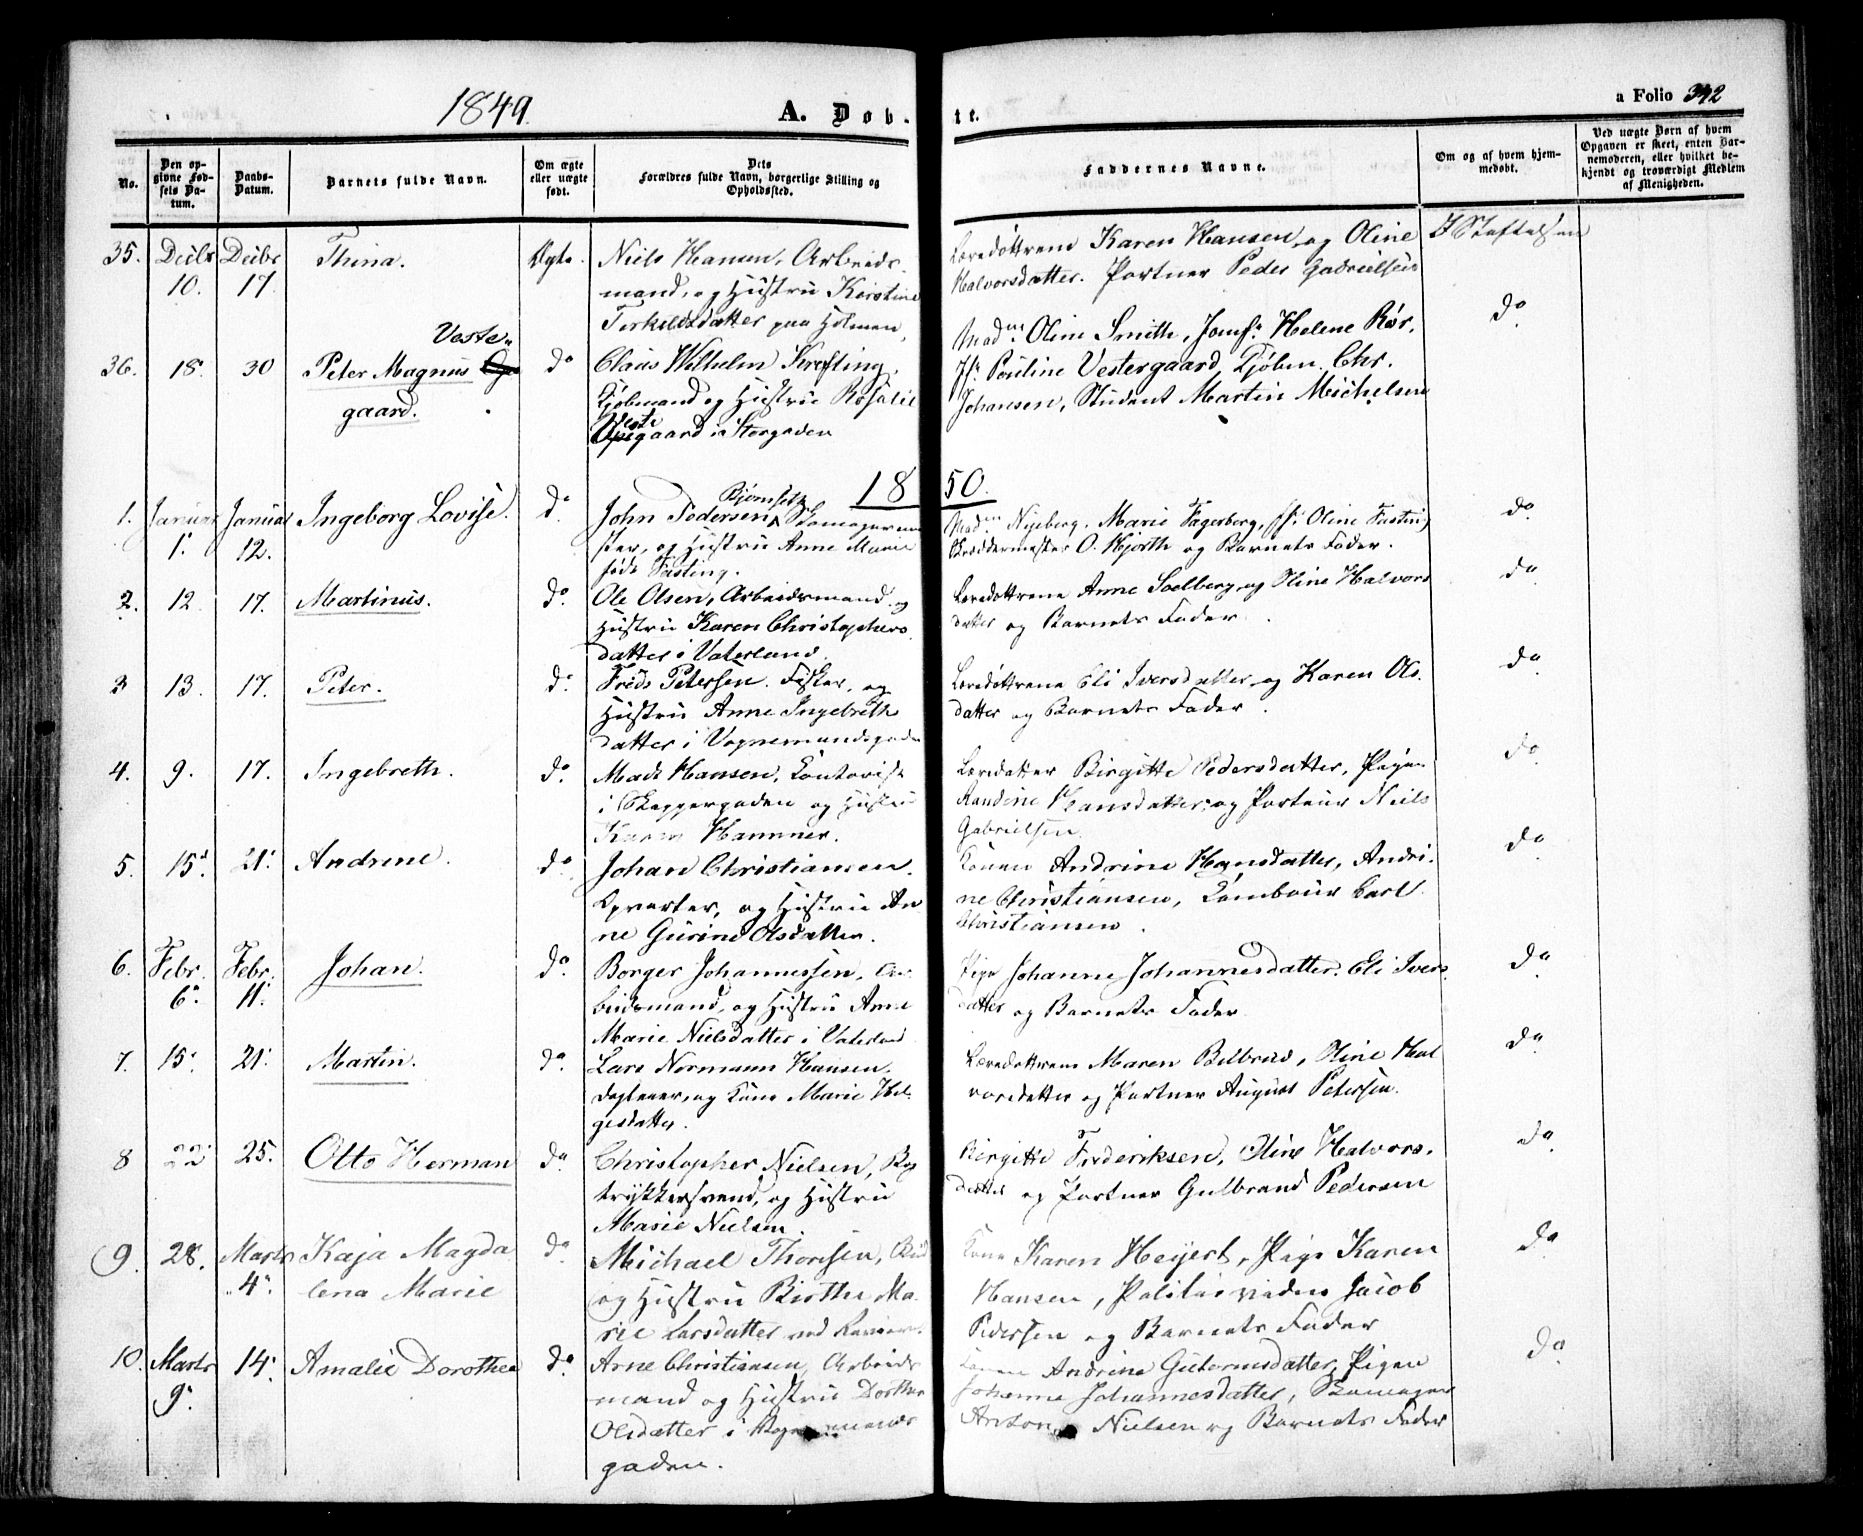 1849.
A. Døb-
te.
a Folio 342
No.
Den opgivne Fødsels Datum.
Daabs-Datum.
Barnets fulde Navn.
Om ægte eller uægte født.
Dets Forældres fulde Navn, borgerlige Stilling og Opholdssted.
Faddernes Navne.
Om og af hvem hjemmedøbt.
Ved uægte Børn af hvem Opgaven er skeet, enten Barnemoderen, eller hvilket bekjendt og troværdigt Medlem af Menigheden.
35. Decbr 10. Decbr 17. Thina. Ægte.
Niels Hansen, Arbeids-
mand, og Hustru Kirstine
Terkildsdatter paa Holmen.
Karen Hansen og Oline
Halvorsdatter. Portner Peder Gabrielsen
I Stiftelsen
36. 18. 30 Peter Magnus Veste-
gaard. do
Claus Wilhelm Krefting,
Kjøbmand og Hustru Rosalie
Vestegaard i Storgaden
Madme Oline Smith, Jomfr Helene Rør,
Jfr Pouline Vestergaard, Kjøbm. Chr.
Johansen, Student Martin Michelsen
do
1850.
1. Januar 1. Januar 12. Ingeborg Lovise. do
John Pedersen Bjørnseth, Skomagerme-
ster, og Hustru Anne Marie
født Fasting.
Madm Nyeberg, Marie Fagerberg, Jfr Oline Fasting,
Skræddermester O. Hjorth og Barnets Fader.
do
2. 12. 17. Martinus. do
Ole Olsen, Arbeidsmand og
Hustru Karen Christophers
datter i Vaterland.
Anne Soelberg og Oline Halvors
datter og Barnets Fader.
do
3 13. 17. Peter. do
Frids Petersen. Fisker, og
Hustru Anne Ingebreths
datter i Vognmandsgaden
Eli Iversdatter og Karen Ols
datter og Barnets Fader.
do
4. 9. 17. Ingebreth. do
Mads Hansen, Contorist
i Skippergaden og Hustru
Karen Hammer.
Birgitte Pedersdatter, Pigen
Randine Hansdatter og Porteur Niels
Gabrielsen.
do
5. 15. 21. Andrine. do
Johan Christiansen.
og Hustru An
ne Gurine Olsdatter.
Konen Andrine Hansdatter, Andri-
ne Christiansen, Tambour Carl
Christiansen.
do
6. Febr. 6. Febr. 11. Johan. do
Borger Johannessen, Ar-
beidsmand, og Hustru Anne
Marie Nielsdatter i Vaterland
Pige Johanne Johannesdatter. Eli Ivers
datter og Barnets Fader.
do
7. 15. 21. Martin. do
Lars Normann Hansen.
og Kone Marie Hel-
gesdatter.
Maren Bilbred, Oline Hal
vorsdatter og Portner August Petersen.
do
8 22 25. Otto Herman do
Christopher Nielsen, Bog
trykkersvend, og Hustru
Marie Nielsen.
Birgitte Frederiksen, Oline Halvors.
datter og Portner Gulbrand Pedersen
do
9. 28. Marts 4. Kaja Magda
lena Marie do
Michael Thorsen, Bud
og Hustru Birthe Ma-
rie Larsdatter ved
Kone Karen Heyert, Pige Karen
Hansen, Jacob
Pedersen og Barnets Fader
do
10. Marts 9. 14. Amalie Dorothea do
Arne Christiansen, Arbeids
mand og Hustru Dorthe
Olsdatter i Vognmands
gaden.
Konen Andrine Gutormsdatter, Pigen
Johanne Johannesdatter, Skomager
Anton Nielsen og Barnets Fader
do